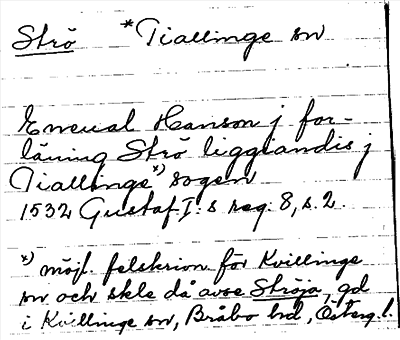 Strö *Tiallinge sn
Eneual Hanson j for-
läning Strö liggiandis j
Tiallinge *) sogen
1532 Gustaf I:s reg. 8, s. 2.
*) möjl. felskrivn för Kvillinge
sn och skle då avse Ströja, gd
i Kvillinge sn, Bråbo hd, Österg. l.